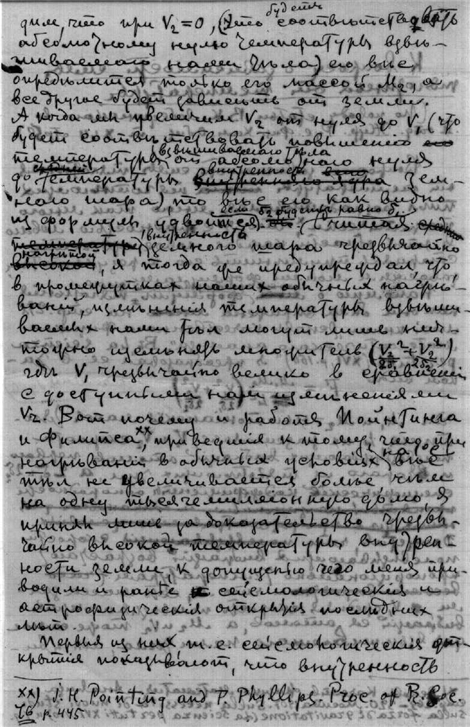 дим, что при V₂=0, (что будетъ соотвѣтствовать
абсолютному нулю температуры взвѣ-
шиваемаго нами тѣла) его вѣсъ
опредѣлится только его массой M₂, а
все другое будетъ зависѣть от земли.
А когда мы увеличим V₂ от нуля до V, (что
будет соотвѣтствовать повышенію
температуры взвѣшиваемаго тѣла от абсолютнаго нуля
до температуры внутренности зем-
ного шара) то вѣсъ его как видно
из формулы, удвоится, если бы считая
внутренность земного шара чрезвычайно
нагрѣтой, я тогда же предупреждал, что,
в промежутках наших обычных нагрѣ-
ваній, измѣненія температуры взвѣши-
ваемых нами тѣл могут лишь нич-
тожно измѣнять множитель
гдѣ V, чрезвычайно велико в сравненіи
с доступными нам измѣненіями
V₂. Вот почему и работа Пойнтинга
и Филипса, xx приведшая к тому, что при
нагрѣваніи в обычных условіях вѣс
тѣл не увеличивается болѣе чѣм
на одну тысячемилліонную долю, я
принял лишь за доказательство чрезвы-
чайно высокой температуры внутрен-
ности земли, к допущенію чего меня при-
водили и ранѣе сейсмологическія и
астрофизическія открытія послѣдних
лѣт.
Первыя из них т. е. сейсмологическія от-
крытія показывают, что внутренность
xx) J. H. Pointing and P. Phyllips. Proc. of R. Soc.
76. p. 445